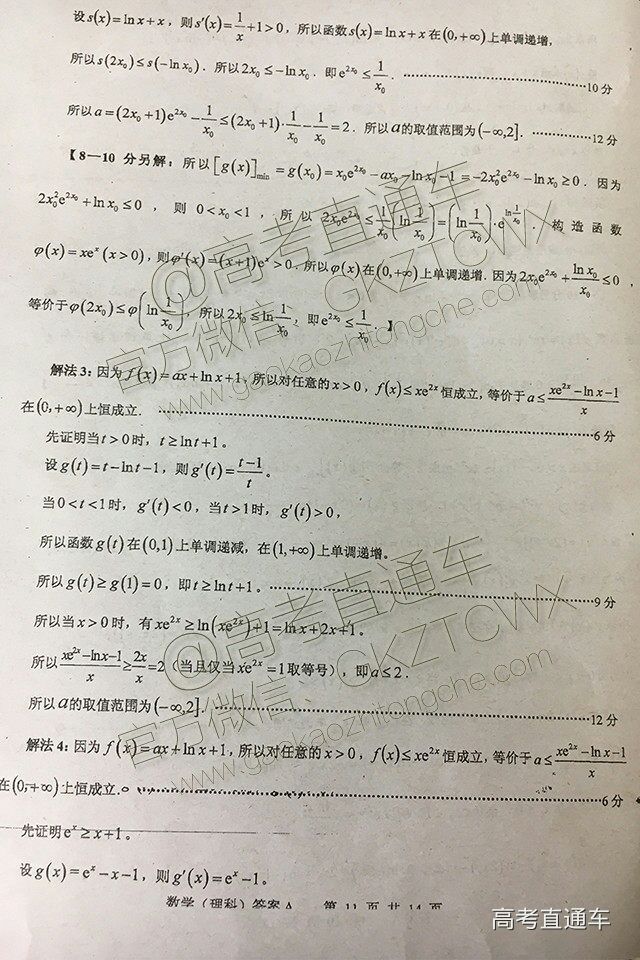 设s(x)=ln x+x，则s′(x)=1/x+1>0，所以函数s(x)=ln x+x在(0,+∞)上单调递增，
所以s(2x₀)≤s(−ln x₀)．所以2x₀≤−ln x₀．即e^{2x₀}≤1/x₀．……………………10分
所以a=(2x₀+1)e^{2x₀}−1/x₀≤(2x₀+1)·1/x₀−1/x₀=2．所以a的取值范围为(−∞,2]．……………12分
【8—10 分另解：所以[g(x)]_{min}=g(x₀)=x₀e^{2x₀}−ax₀−ln x₀−1=−2x₀²e^{2x₀}−ln x₀≥0．因为
2x₀²e^{2x₀}+ln x₀≤0，则 0<x₀<1，所以 2x₀e^{2x₀}≤1/x₀(ln 1/x₀)=(ln 1/x₀)·e^{ln 1/x₀}．构造函数
φ(x)=xe^x(x>0)，则φ′(x)=(x+1)e^x>0．所以φ(x)在(0,+∞)上单调递增．因为2x₀e^{2x₀}+ln x₀/x₀≤0，
等价于φ(2x₀)≤φ(ln 1/x₀)，所以2x₀≤ln 1/x₀，即e^{2x₀}≤1/x₀．】
解法3:因为f(x)=ax+ln x+1，所以对任意的x>0，f(x)≤xe^{2x}恒成立，等价于a≤(xe^{2x}−ln x−1)/x
在(0,+∞)上恒成立．……………………6分
先证明当t>0时，t≥ln t+1。
设g(t)=t−ln t−1，则g′(t)=(t−1)/t。
当0<t<1时，g′(t)<0，当t>1时，g′(t)>0，
所以函数g(t)在(0,1)上单调递减，在(1,+∞)上单调递增。
所以g(t)≥g(1)=0，即t≥ln t+1。……………………9分
所以当x>0时，有xe^{2x}≥ln(xe^{2x})+1=ln x+2x+1。
所以(xe^{2x}−ln x−1)/x≥2x/x=2（当且仅当xe^{2x}=1取等号），即a≤2．
所以a的取值范围为(−∞,2]．……………………12分
解法4:因为f(x)=ax+ln x+1，所以对任意的x>0，f(x)≤xe^{2x}恒成立，等价于a≤(xe^{2x}−ln x−1)/x
在(0,+∞)上恒成立。……………………6分
先证明e^x≥x+1。
设g(x)=e^x−x−1，则g′(x)=e^x−1。
数学（理科）答案A 第 11 页 共 14 页
@高考直通车
官方微信：GKZTCWX
www.gaokaozhitongche.com
@高考直通车
官方微信：GKZTCWX
www.gaokaozhitongche.com
高考直通车